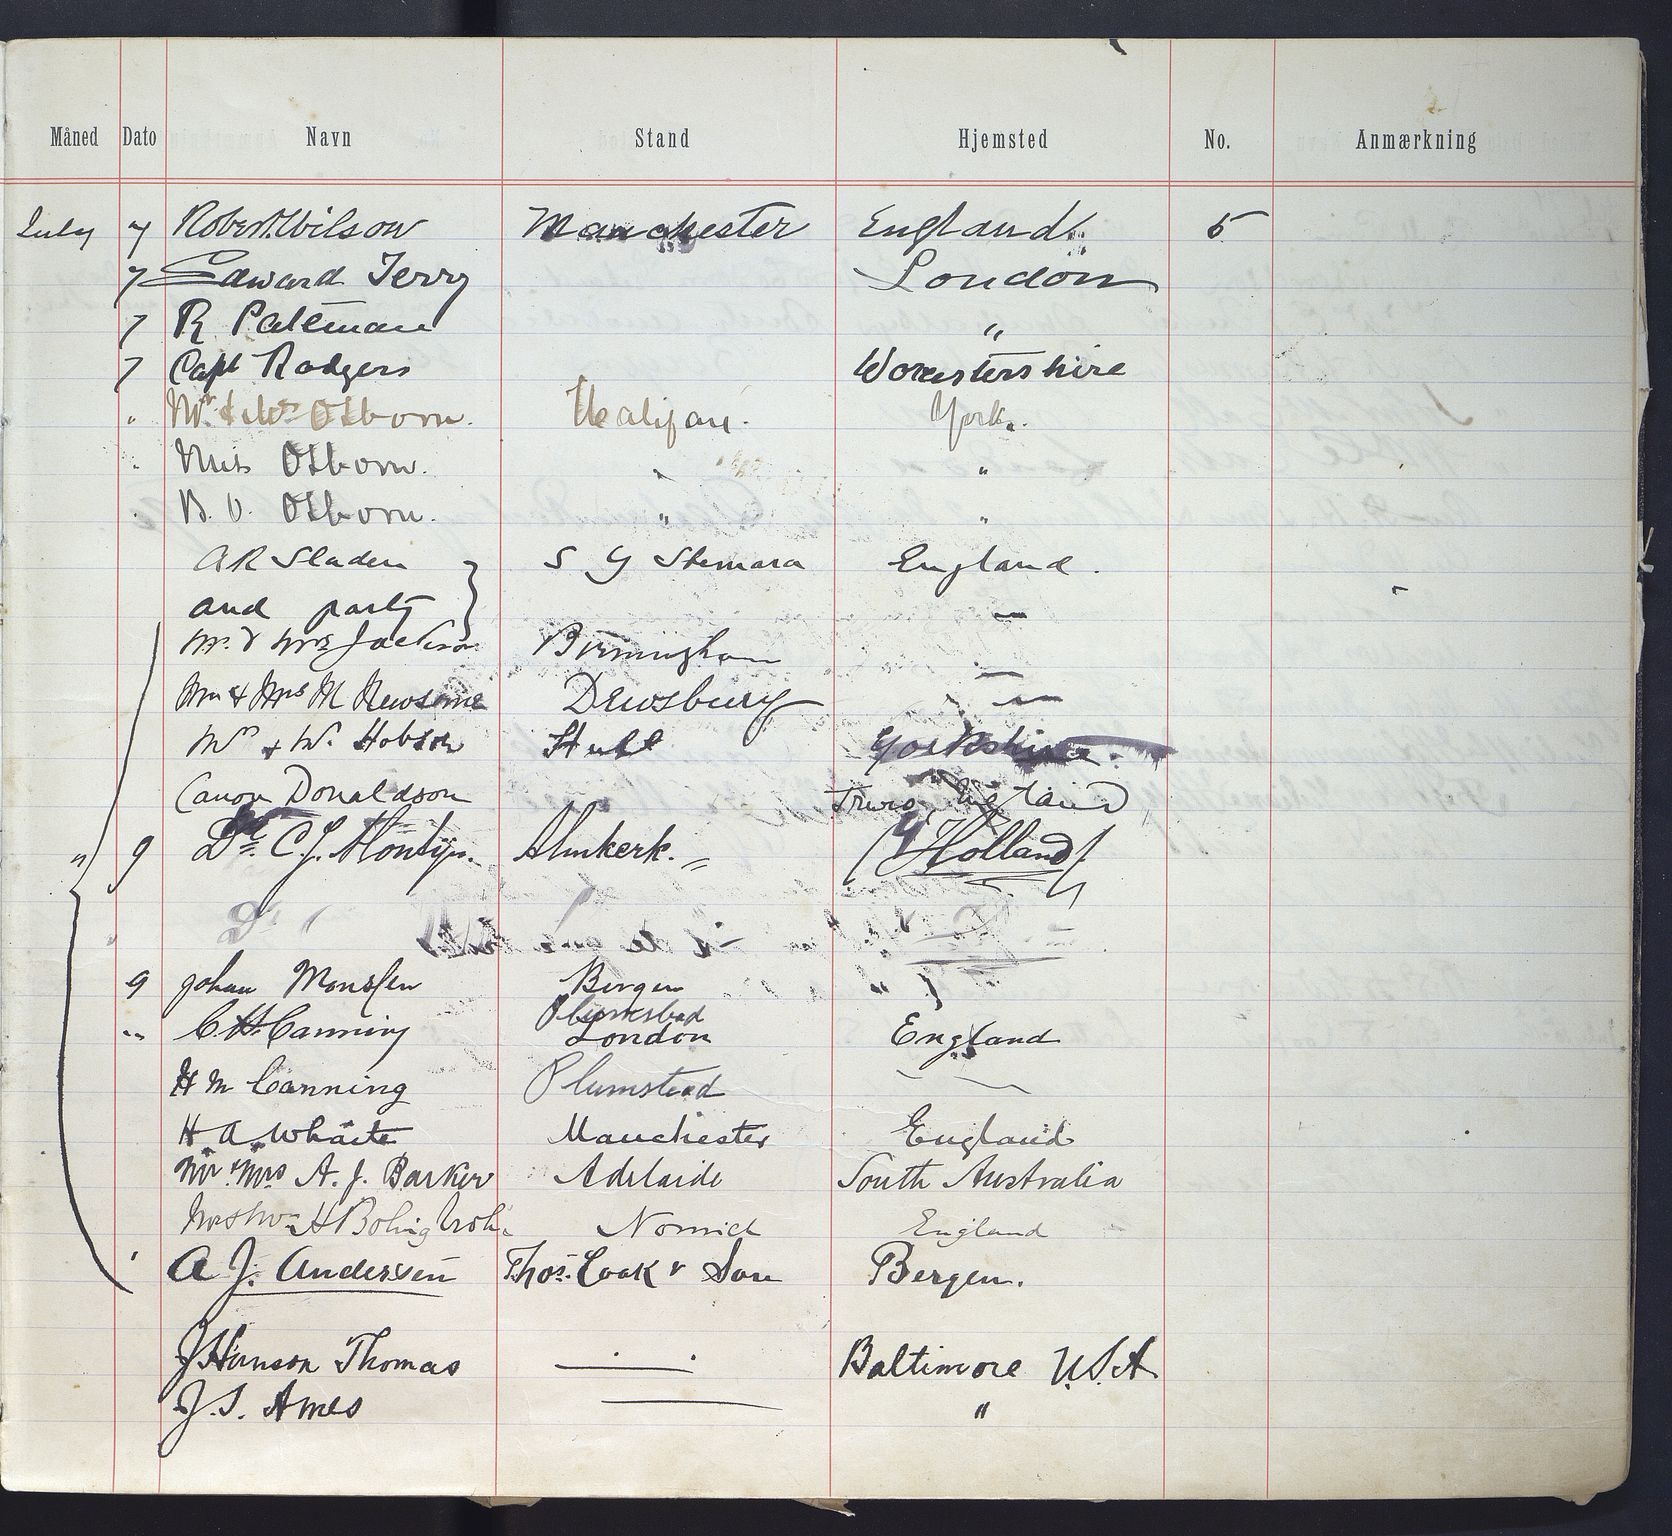 Måned Dato Navn Stand Hjemsted No. Anmærkning
July 7 Robert Wilson Manchester England 5
7 Edward Terry London
7 R Pateman "
7 Capt Rodgers Worcestershire
" Mr & Mrs Osborn. Halifax. York.
" Miss Osborn. " "
" B. V. Osborn. " "
AR Sladen S Y England.
and party } —
Mr. & Mrs Jackson Birmingham —
Mr & Mrs M Newsome Dewsbury —
Mr & W. Hobson Hull Yorkshire.
Canon Donaldson Truro England
" 9 Dr. C. J. Montijn. Almkerk. (Holland)
Dr
9 Johan Monssen Bergen
" C. H. Canning Plumstead London England
H M Canning Plumstead —
H A Whaite Manchester England
Mr. Mrs A. J. Barker Adelaide South Australia
H Bolingbroke Norwich England
' A J. Andersen Thos. Cook & Son Bergen.
J Hanson Thomas — Baltimore U.S.A
J. S. Ames — "